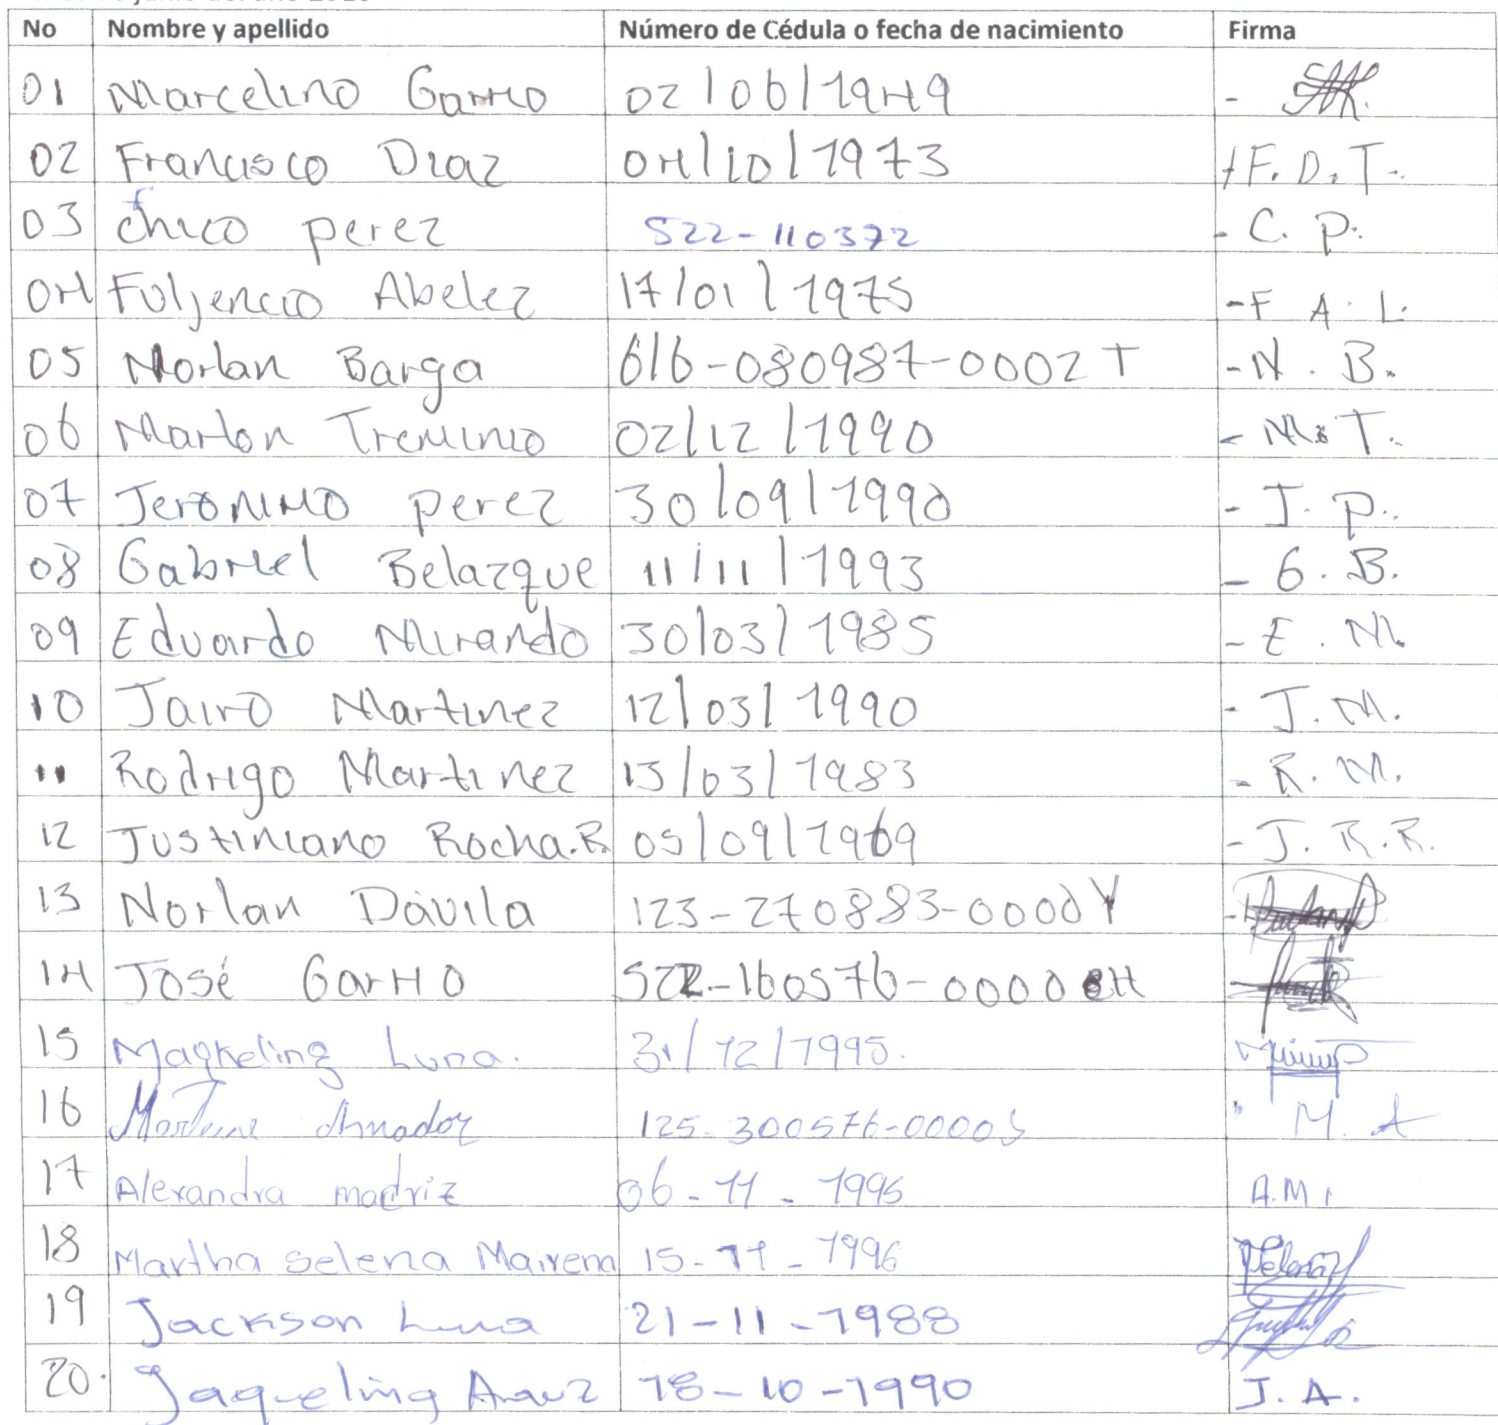 No Nombre y apellido Número de Cédula o fecha de nacimiento Firma
01 Marcelino Garrio 02/06/1949 -
02 Francisco Diaz 04/10/1973 F. D. T.
03 chico perez 522-110372 - C. P.
04 Fuljencio Abelez 17/01/1975 - F A. L.
05 Norlan Barga 616-080987-0002T - N. B.
06 Marlon Treminio 02/12/1990 - M. T.
07 Jeronimo perez 30/09/1990 - J. P.
08 Gabriel Belazque 11/11/1993 - G. B.
09 Eduardo Mirando 30/03/1985 - E. M.
10 Jairo Martinez 12/03/1990 - J. M.
11 Rodrigo Martinez 13/03/1983 - R. M.
12 Justiniano Rocha.R. 05/09/1969 - J. R. R.
13 Norlan Davila 123-270883-0000Y -
14 José Garrio 522-160576-0000
15 Maqkeling Luna. 31/12/1995.
16 Amador 125-300576-0000S M. A
17 Alexandra madriz 06-11-1996 A.M.
18 Martha selena Mairena 15-11-1996 Selena
19 Jackson Luna 21-11-1988
20. Jaqueling Arauz 18-10-1990 J. A.